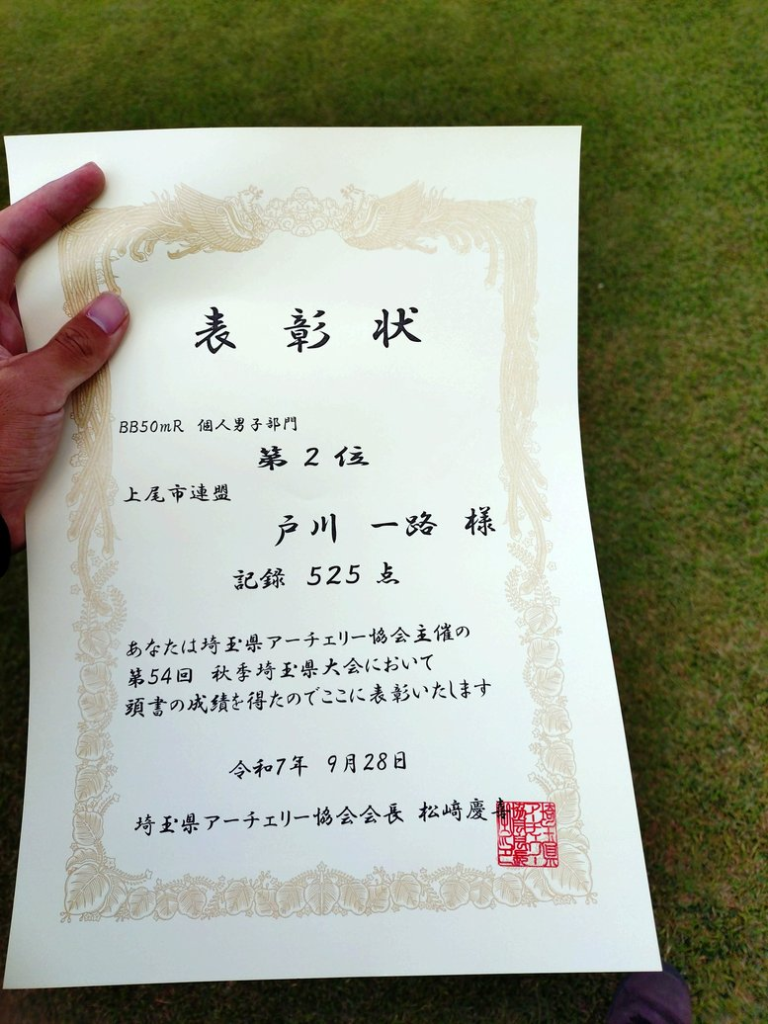 表彰状
BB50mR 個人男子部門
第2位
上尾市連盟
戸川 一路 様
記録 525 点
あなたは埼玉県アーチェリー協会主催の
第54回 秋季埼玉県大会において
頭書の成績を得たのでここに表彰いたします
令和7年 9月28日
埼玉県アーチェリー協会会長 松﨑慶